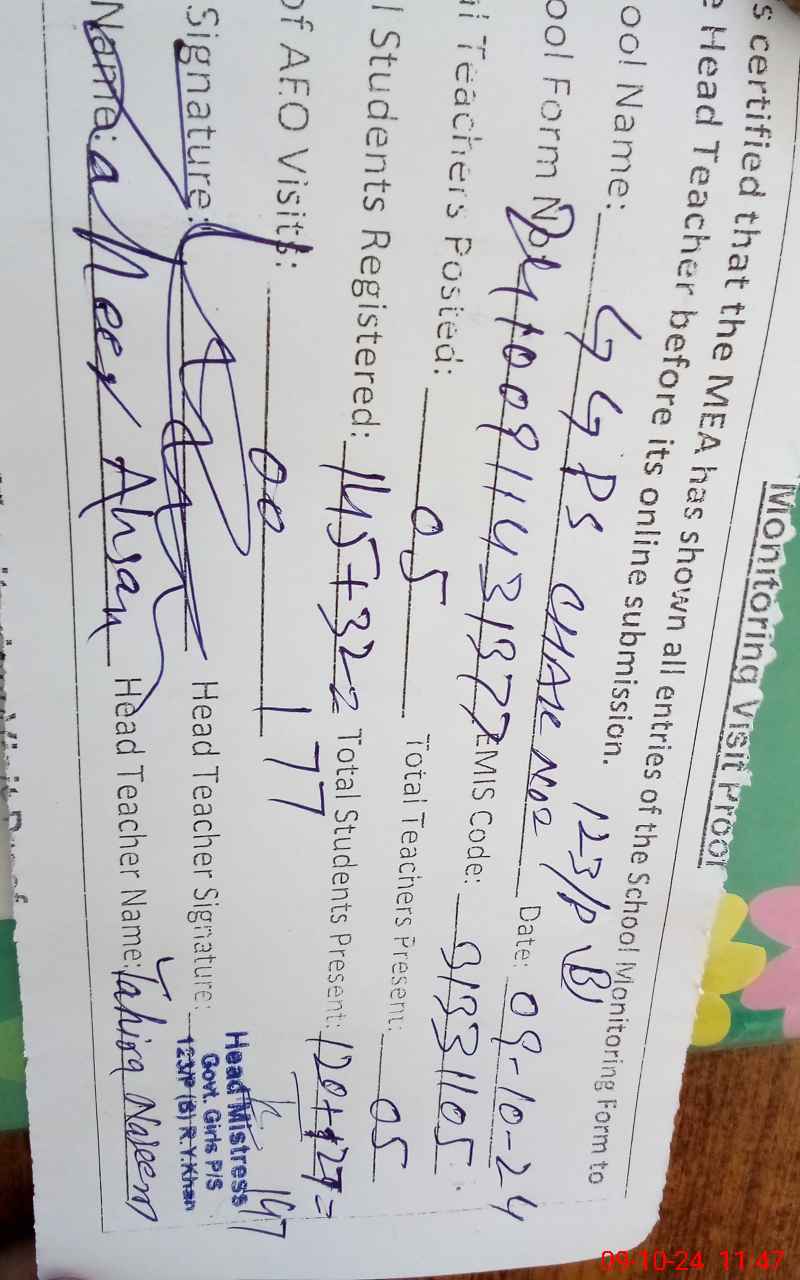 Monitoring Visit Proof
s certified that the MEA has shown all entries of the School Monitoring Form to
e Head Teacher before its online submission.
ool Name: GGPS CHAK No2 123/P (B)
ool Form No: 24100911431377 Date: 09-10-24
l Teachers Posted: 05 EMIS Code: 31331105
l Students Registered: 145+32=177 Total Teachers Present: 05
of AEO Visits: 00 Total Students Present: 120+27=147
Signature: Head Teacher Signature:
Head Mistress
Govt. Girls P/S
123/P (B) R.Y.Khan
Name: Ahsan Head Teacher Name: Tahira Naseem
09-10-24 11:47